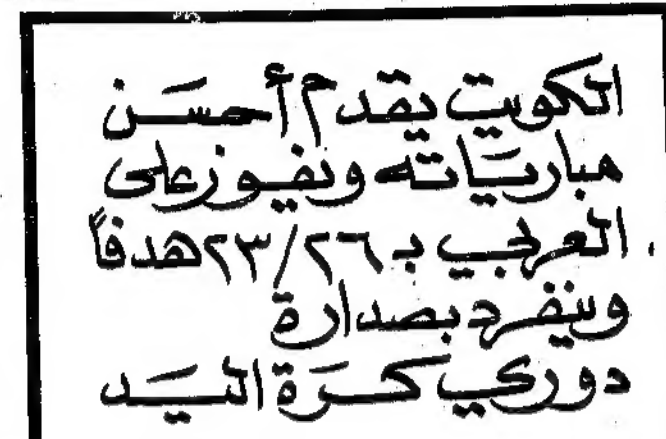 الكويت يقدم أحسَن
مبارياته ويفوز على
العربي بـ ٢٣/٢٦ هدفاً
وينفرد بصدارة
دوري كرَة اليَد